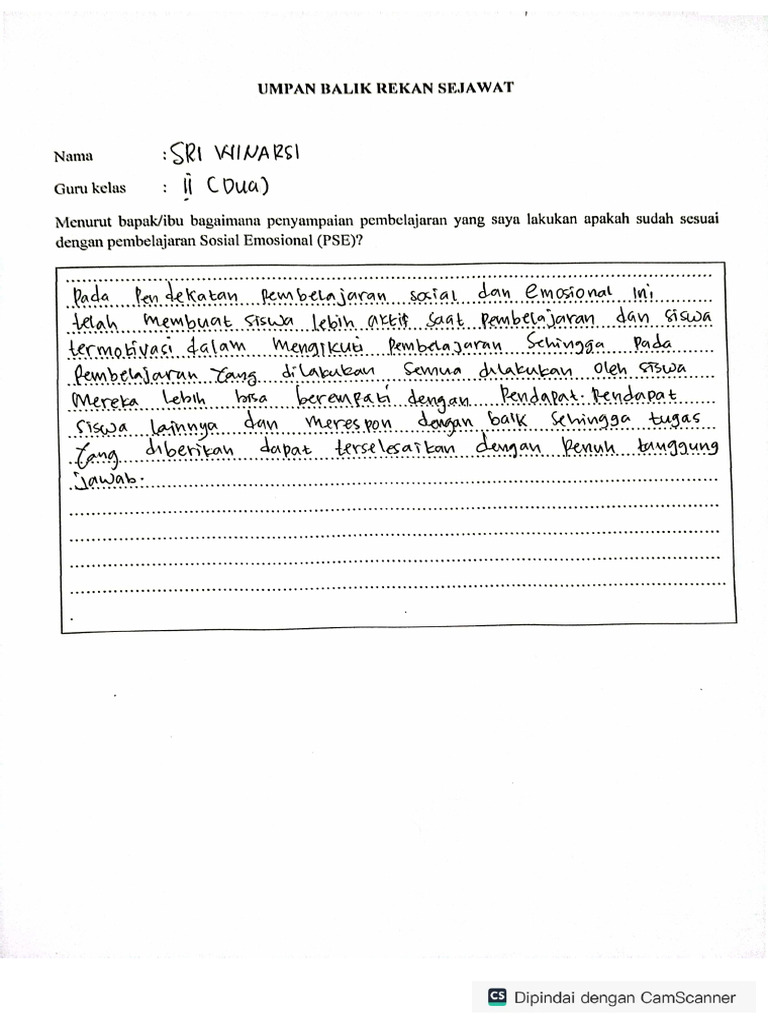 UMPAN BALIK REKAN SEJAWAT
Nama : SRI WINARSI
Guru kelas : II (Dua)
Menurut bapak/ibu bagaimana penyampaian pembelajaran yang saya lakukan apakah sudah sesuai
dengan pembelajaran Sosial Emosional (PSE)?
Pada Pendekatan Pembelajaran sosial dan emosional ini
telah membuat siswa lebih aktif saat Pembelajaran dan siswa
termotivasi dalam mengikuti Pembelajaran sehingga Pada
Pembelajaran Yang dilakukan semua dilakukan oleh siswa
Mereka lebih bisa berempati dengan Pendapat-Pendapat
siswa lainnya dan merespon dengan baik sehingga tugas
Yang diberikan dapat terselesaikan dengan Penuh tanggung
jawab.
CS Dipindai dengan CamScanner